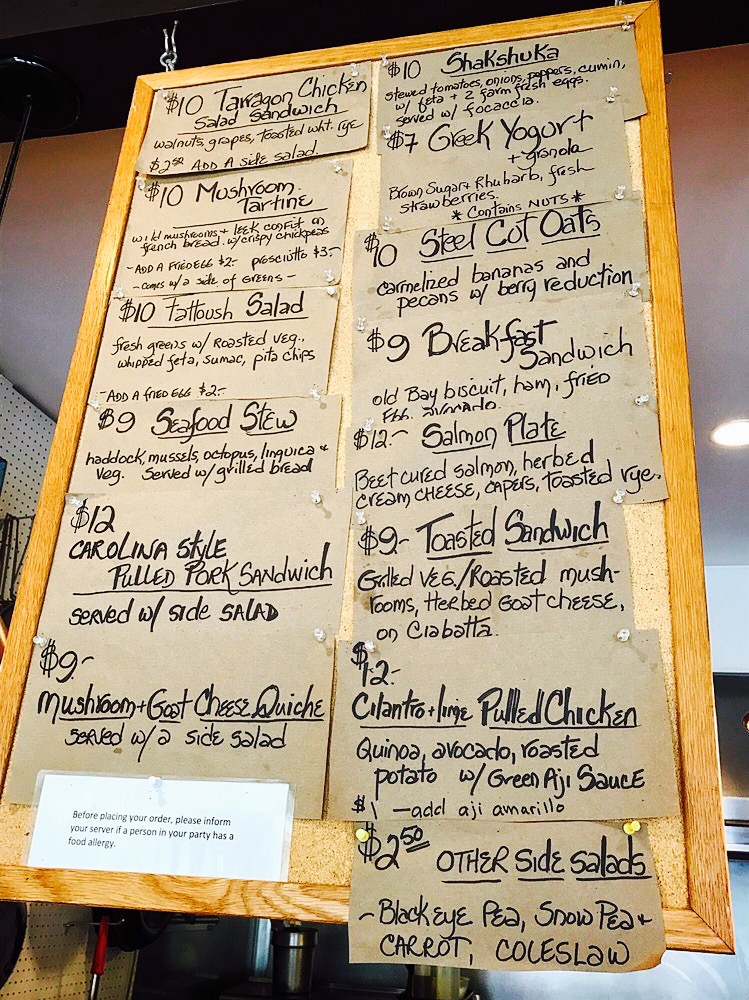 $10 Tarragon Chicken
Salad Sandwich
walnuts, grapes, toasted wht. rye
$2.50 ADD A side salad.
$10 Mushroom
Tartine
wild mushrooms + leek confit on
french bread. w/crispy chickpeas
- ADD A FRIED EGG $2.- prosciutto $3.-
- comes w/a side of GREENS -
$10 Fattoush Salad
fresh greens w/ Roasted veg.,
whipped feta, sumac, pita chips
- ADD A fried EGG $2.-
$9 Seafood Stew
haddock, mussels, octopus, linguica +
veg. Served w/grilled bread
$12
CAROLINA STYLE
PULLED PORK SANDWICH
served w/ side SALAD
$9.-
Mushroom + Goat Cheese Quiche
served w/ a side salad
Before placing your order, please inform
your server if a person in your party has a
food allergy.
$10 Shakshuka
stewed tomatoes, onions, peppers, cumin,
w/ feta + 2 farm fresh eggs.
served w/ focaccia.
$7 Greek Yogurt
+ granola
Brown Sugar + Rhubarb, fresh
strawberries.
* Contains NUTS *
$10 Steel Cut Oats
carmelized bananas and
pecans w/ berry reduction
$9 Breakfast
Sandwich
old Bay biscuit, ham, fried
Egg, avocado.
$12.- Salmon Plate
Beet cured salmon, herbed
cream CHEESE, capers, toasted rye.
$9.- Toasted Sandwich
Grilled VEG./Roasted mush-
rooms, Herbed Goat cheese,
on Ciabatta.
$12.-
Cilantro + lime Pulled Chicken
Quinoa, avocado, roasted
potato w/ Green Aji Sauce
$1 - add aji amarillo
$2.50 OTHER Side Salads
- Black eye Pea, Snow Pea +
CARROT, COLESLAW